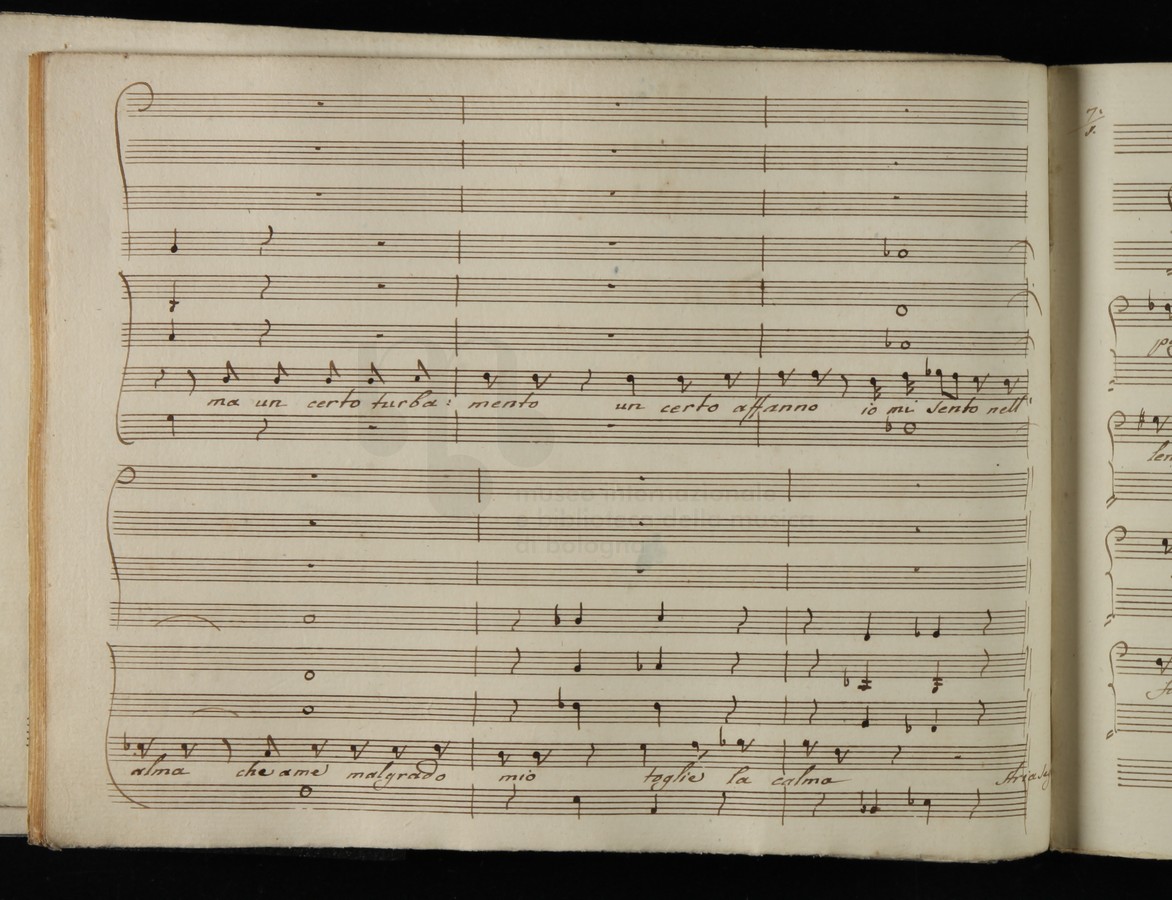 ma un certo turba: mento un certo affanno io mi sento nell'
museo internazionale
e biblioteca della musica
di bologna
alma che a me malgrado mio toglie la calma
Aria